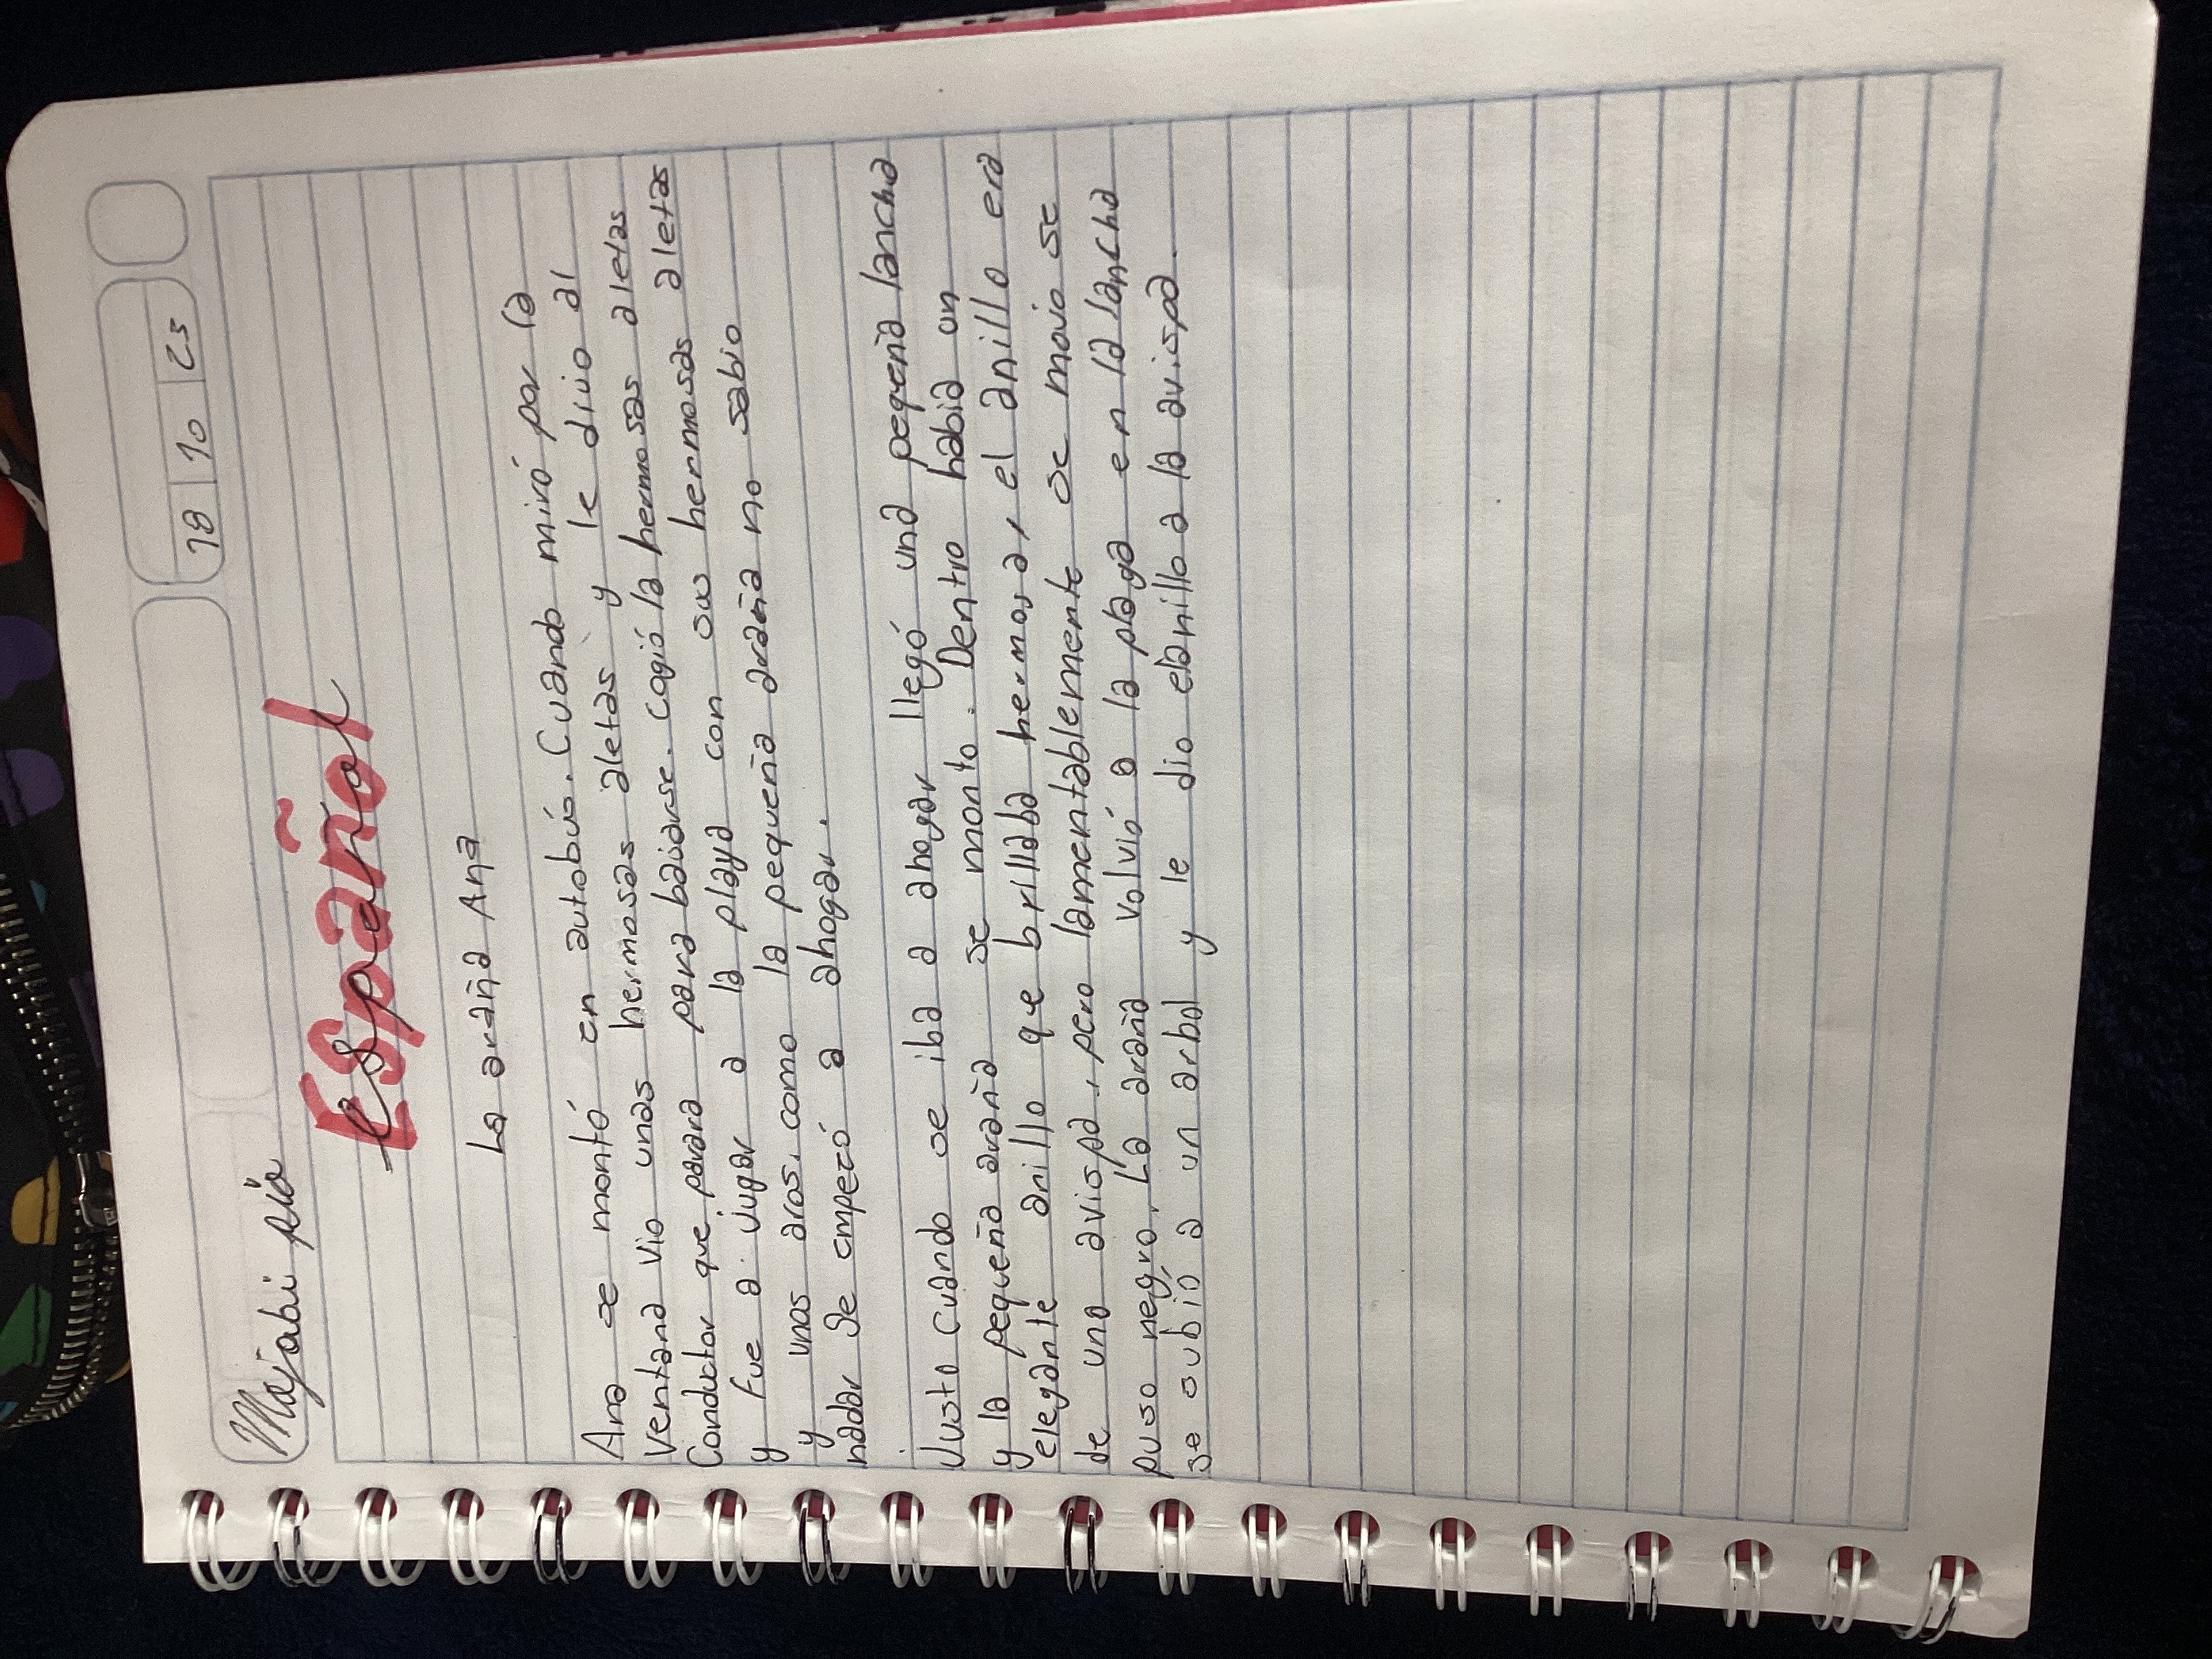 18 10 23
Español
La araña Ana
Ana se montó en autobús. Cuando miró por la
Ventana Vio unas hermosas aletas y le dijo al
Conductor que parara para bajarse. Cogió la hermosas aletas
y Fue a jugar a la playa con sus hermosas aletas
y unos aros, como la pequeña araña no sabio
nadar Se empezó a ahogar.
Justo cuando se iba a ahogar llegó una pequeña lancha
y la pequeña araña se monto. Dentro habia un
elegante anillo que brillaba hermosa, el anillo era
de una avispa, pero lamentablemente se movio se
puso negro. La araña volvió a la playa en la lancha
se subió a un arbol y le dio el anillo a la avispa.